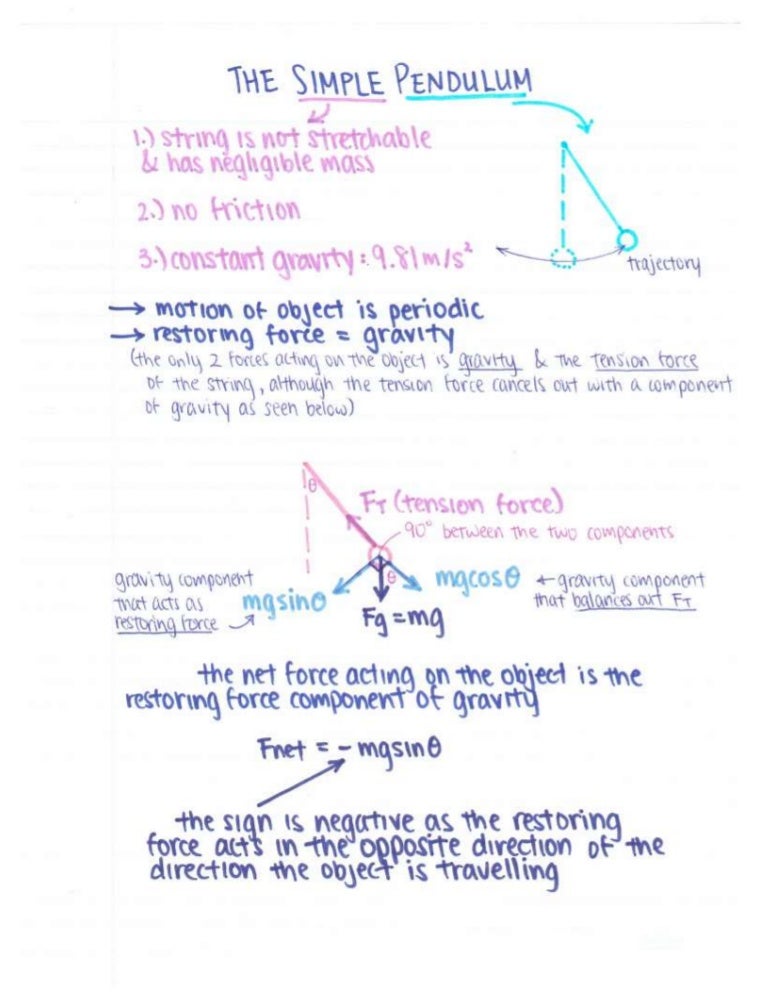 THE SIMPLE PENDULUM
1.) string is not stretchable
& has negligible mass
2.) no friction
3.) constant gravity = 9.81 m/s²
trajectory
→ motion of object is periodic
→ restoring force = gravity
(the only 2 forces acting on the object is gravity & the tension force
of the string, although the tension force cancels out with a component
of gravity as seen below)
θ
FT (tension force)
90° between the two components
θ
gravity component
that acts as
restoring force
mgsinθ
Fg = mg
mgcosθ
← gravity component
that balances out FT
the net force acting on the object is the
restoring force component of gravity
Fnet = - mgsinθ
the sign is negative as the restoring
force acts in the opposite direction of the
direction the object is travelling